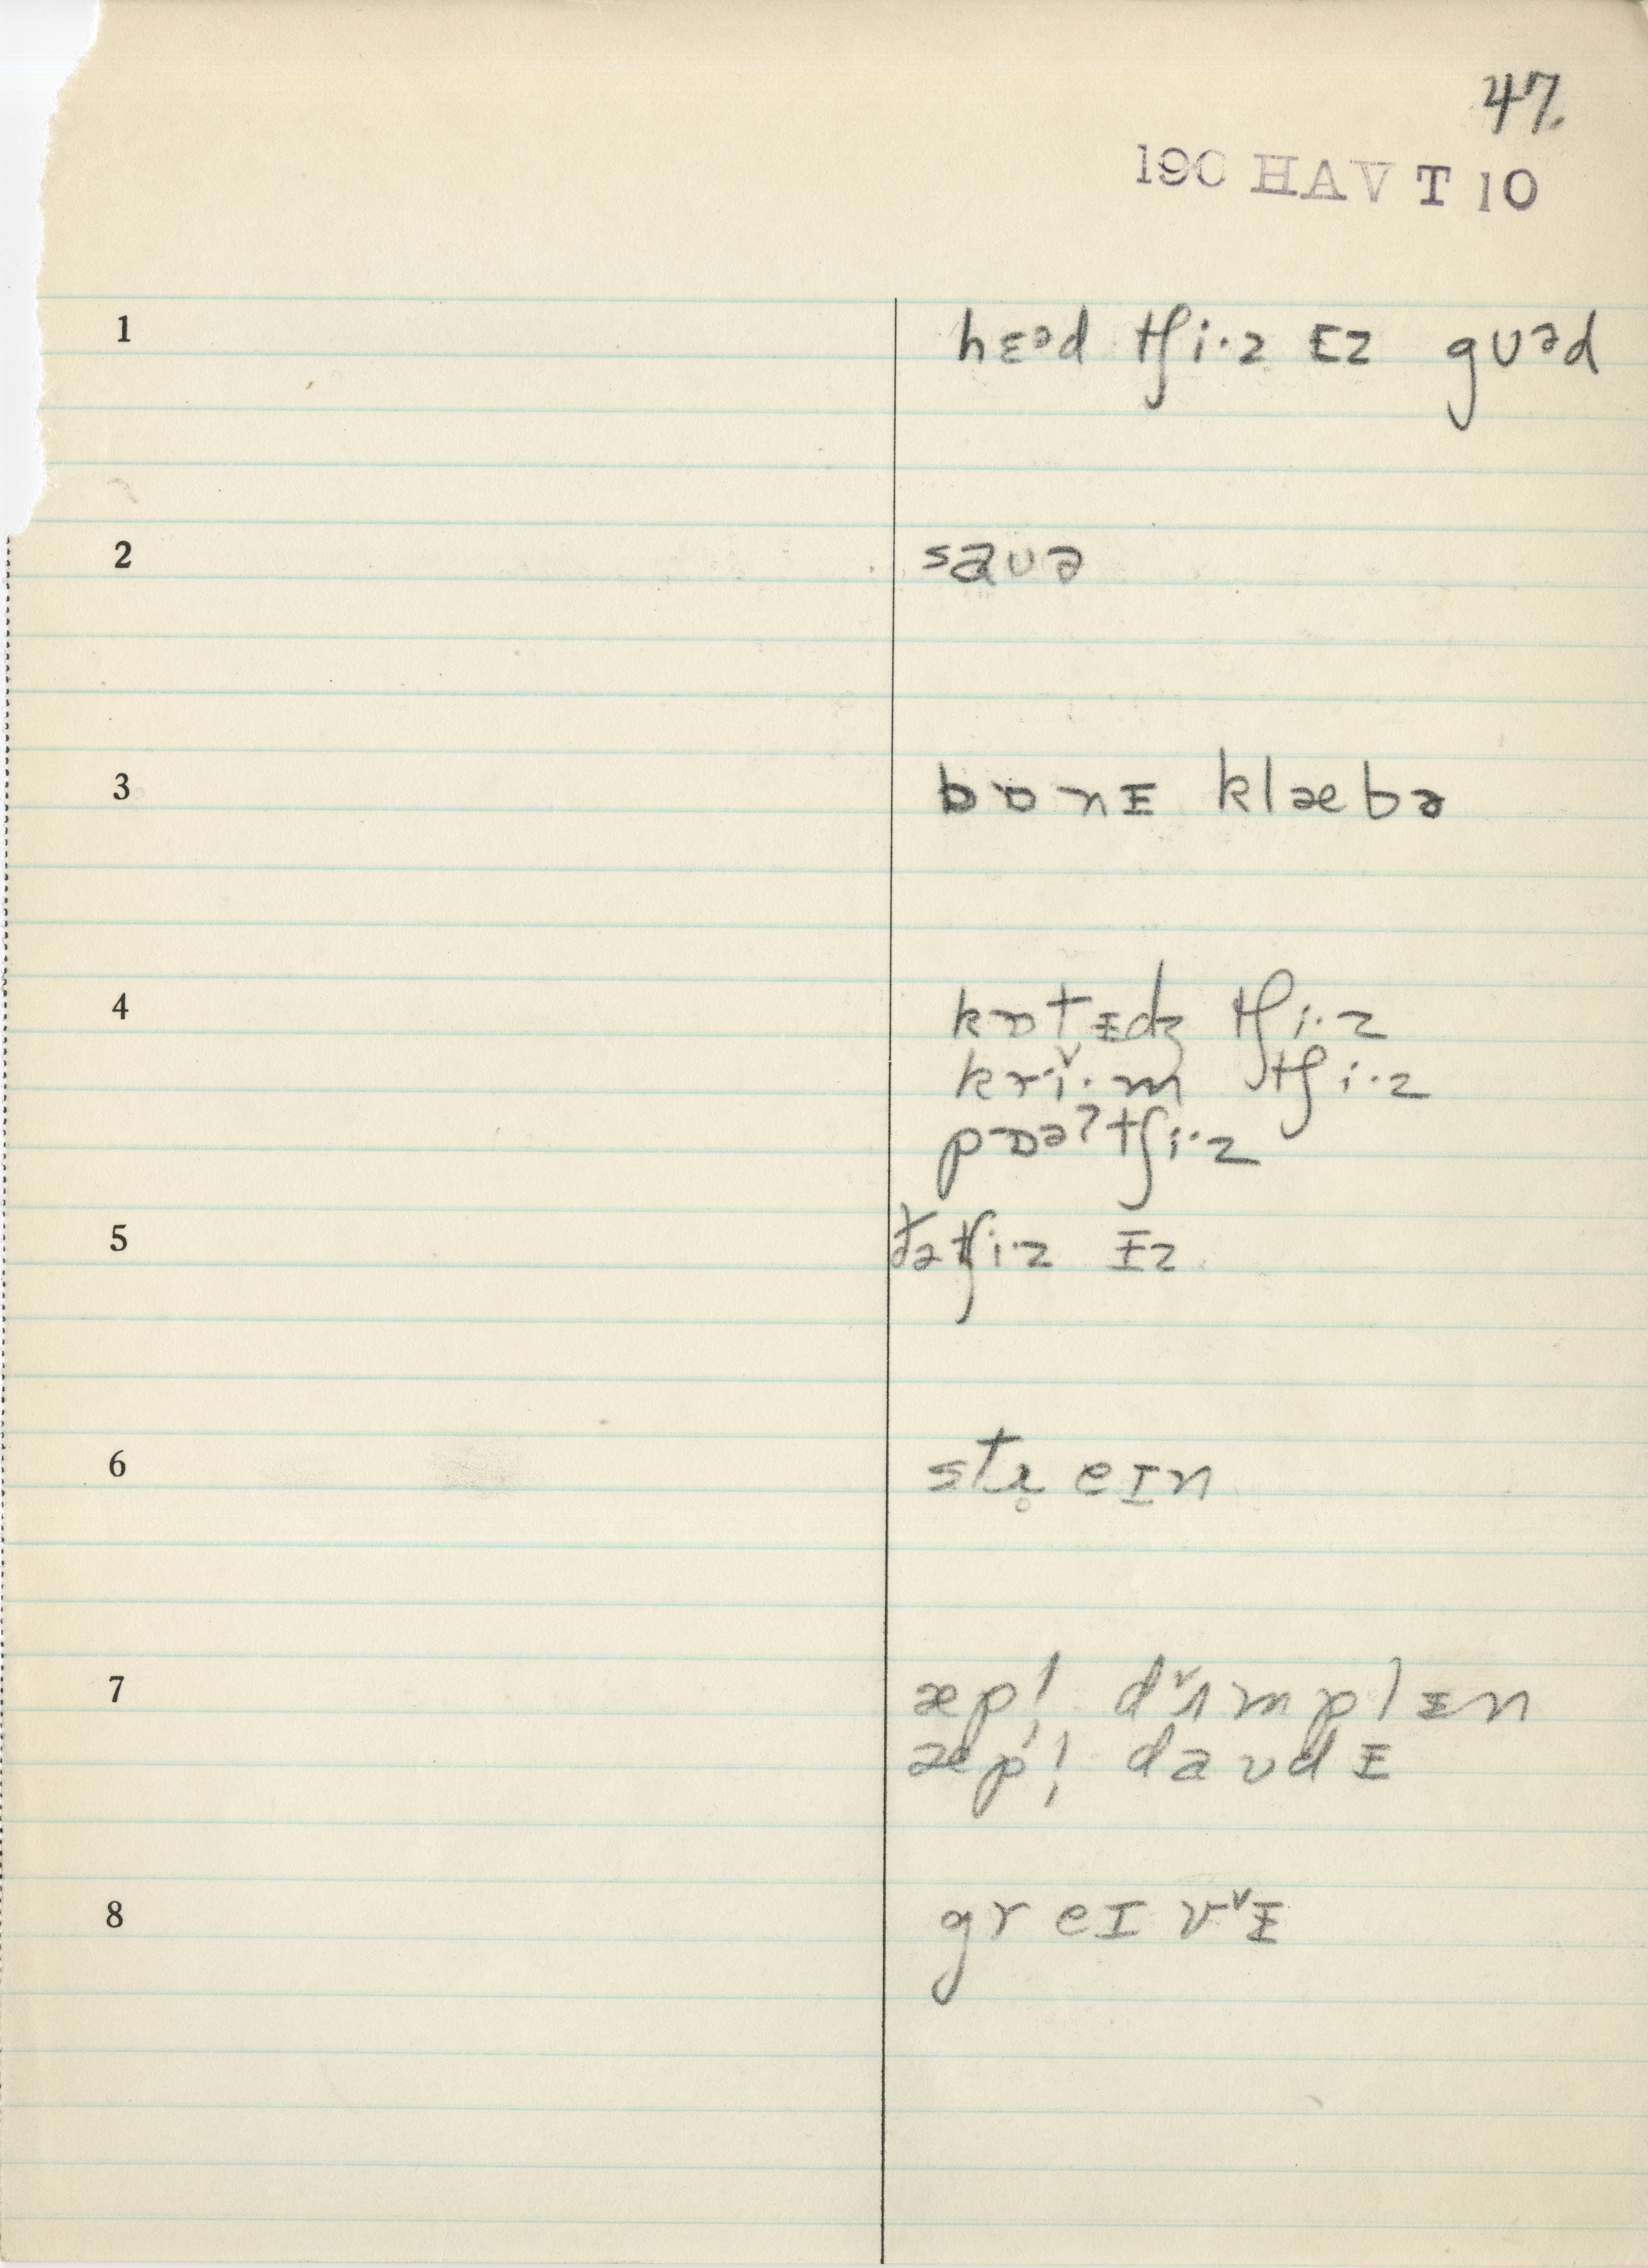 47.
190 HAV T 10
1 hɛᵊd tʃi·z ᵻz gʊᵊd
2 saʊə
3 bɒnᵻ klæbə
4 kɒtᵻdʒ tʃi·z
kri˅·m tʃi·z
pɒəʔtʃi·z
5 tʃi·z ᵻz
6 stɹ̥eɪn
7 æpl̩ dʌ˅mplᵻn
æpl̩ daʊdᵻ
8 greɪv˅ᵻ